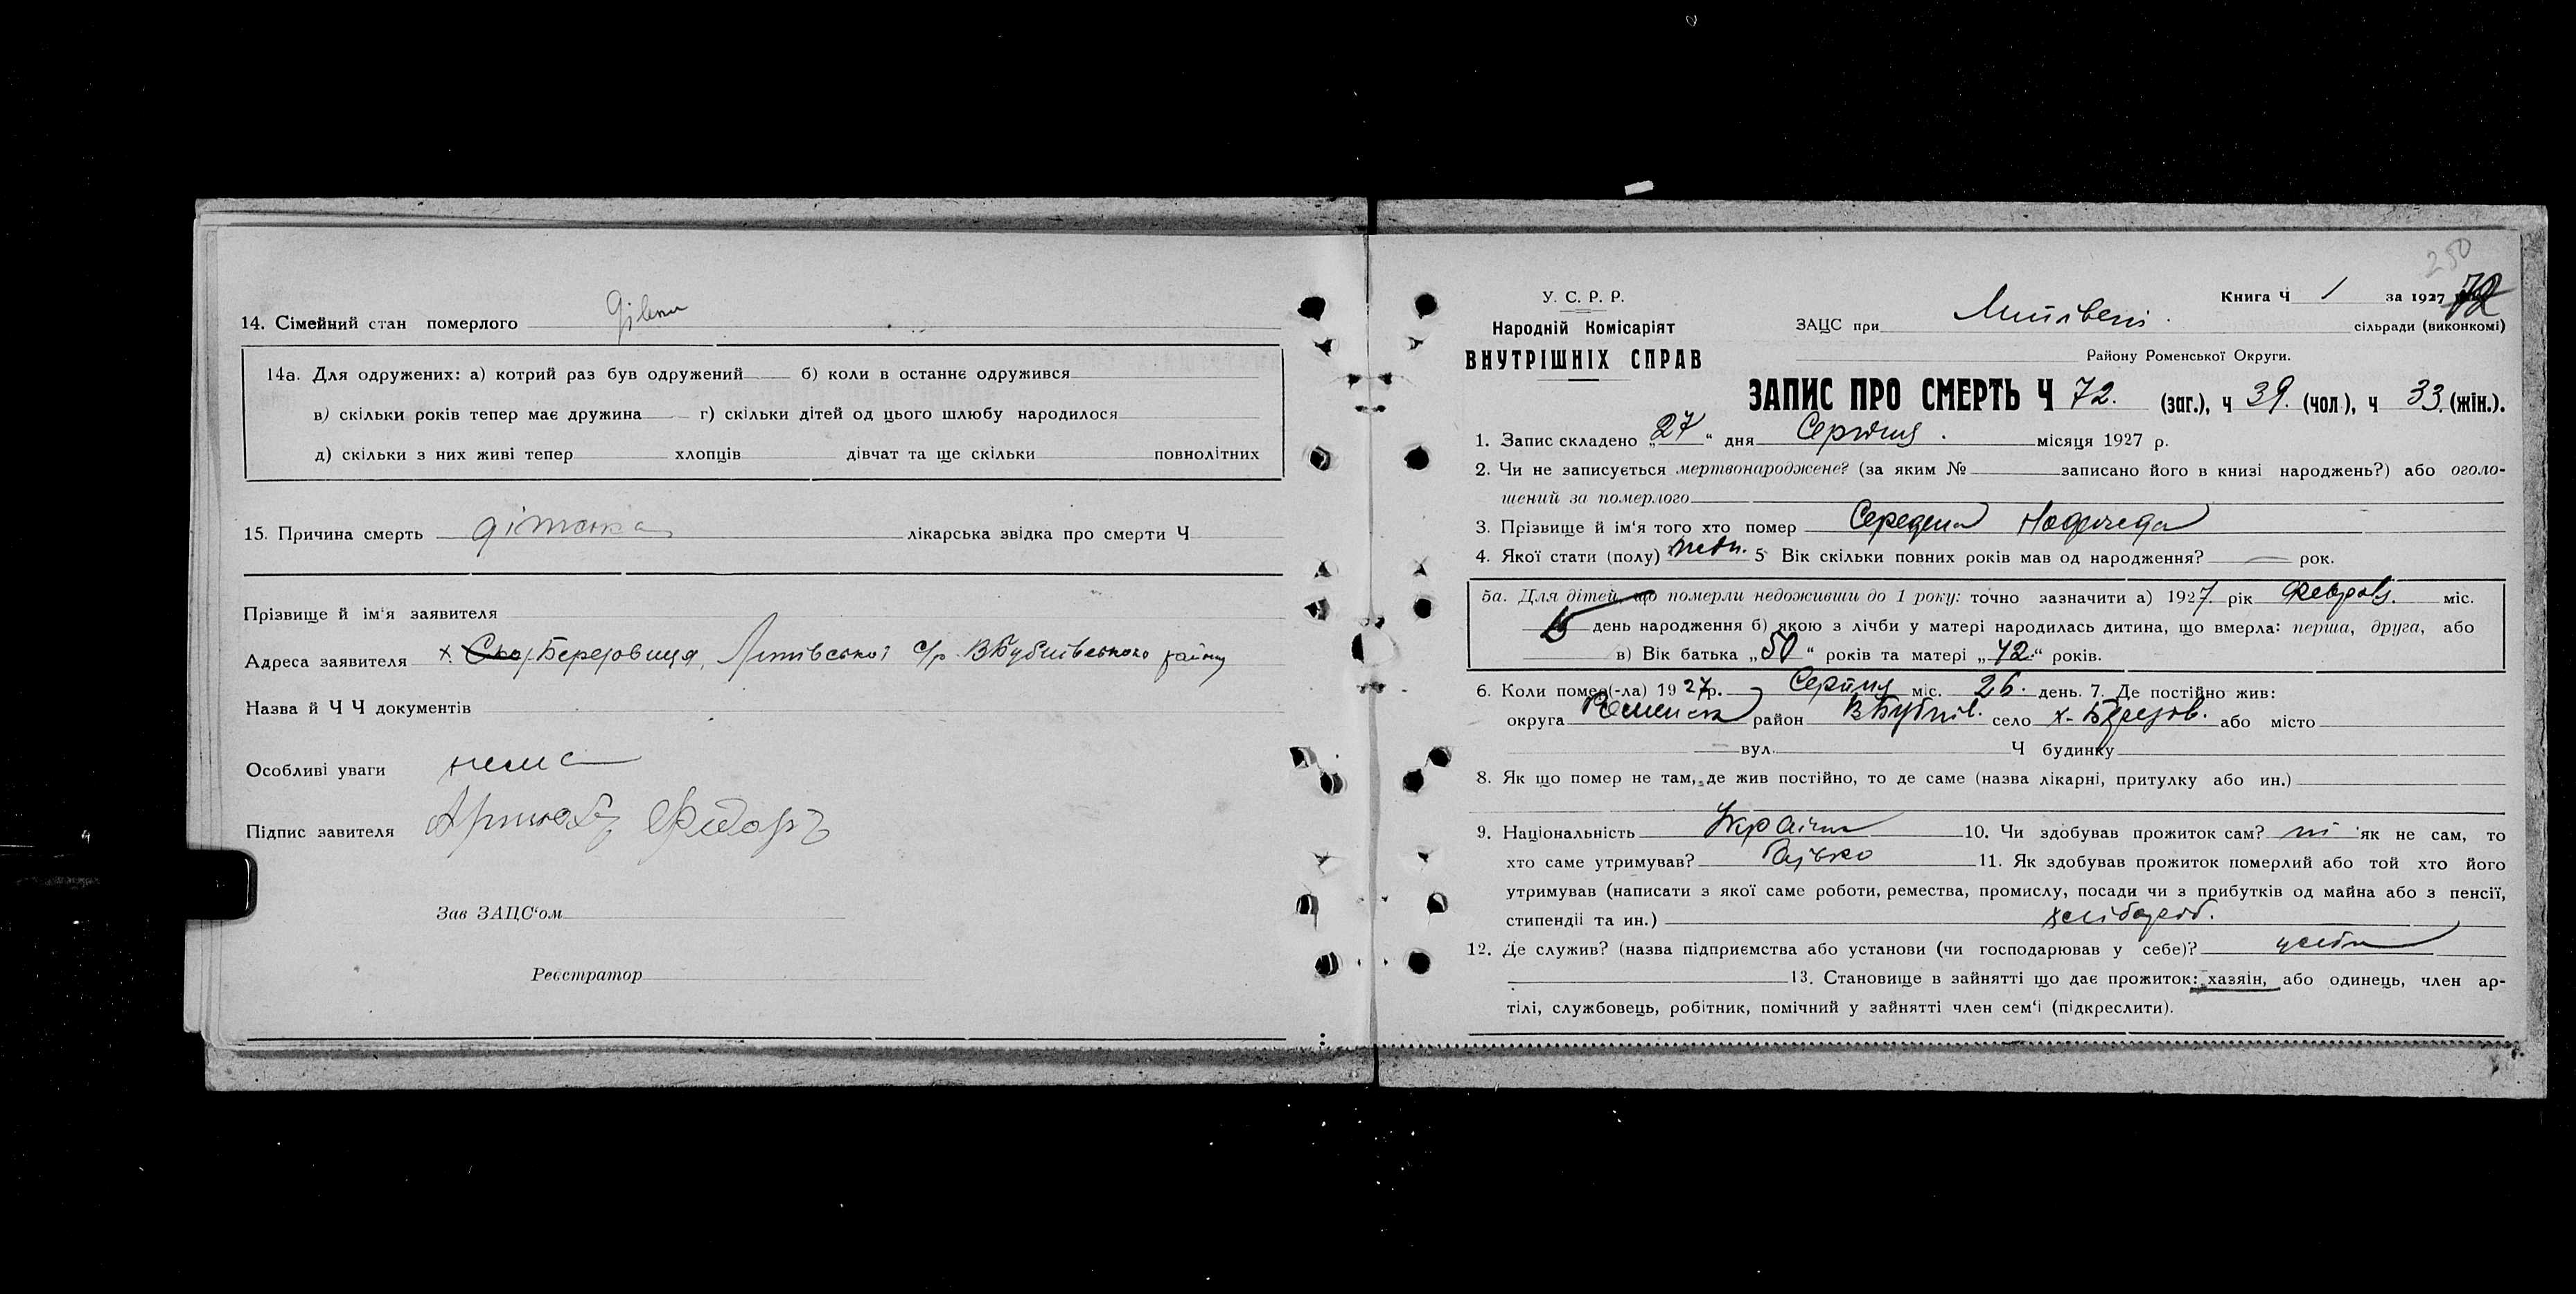 14. Сімейний стан померлого
14а. Для одружених: а) котрий раз був одружений б) коли в останнє одружився
в) скільки років тепер має дружина г) скільки дітей од цього шлюбу народилося
д) скільки з них живі тепер хлопців дівчат та ще скільки повнолітних
15. Причина смерть лікарська звідка про смерти Ч
Прізвище й ім'я заявителя
Адреса заявителя х. Березовиця, Липівської с/р. ВБубнівського району
Назва й Ч Ч документів
Особливі уваги нема
Підпис завителя Федоръ
Зав ЗАЦС'ом
Реєстратор
250
У. С. Р. Р.
Народній Комісаріят
ВНУТРІШНІХ СПРАВ
Книга Ч 1 за 1927 72
ЗАЦС при сільради (виконкомі)
Району Роменської Округи.
ЗАПИС ПРО СМЕРТЬ Ч 72. (заг.), ч 39. (чол), ч 33. (жін.).
1. Запис складено „27“ дня Серпня місяця 1927 р.
2. Чи не записується мертвонароджене? (за яким № записано його в книзі народжень?) або оголо-
шений за померлого
3. Прізвище й ім'я того хто помер Середина Надежда
4. Якої стати (полу) 5 Вік скільки повних років мав од народження? — рок.
5а. Для дітей, що померли недоживши до 1 року: точно зазначити а) 1927 рік міс.
15 день народження б) якою з лічби у матері народилась дитина, що вмерла: перша, друга, або
в) Вік батька „50“ років та матері „42“ років.
6. Коли помер(-ла) 1927р. Серпня міс. 26. день. 7. Де постійно жив:
округа Роменська район ВБубнів. село х. Березов. або місто
вул. Ч будинку
8. Як що помер не там, де жив постійно, то де саме (назва лікарні, притулку або ин.)
9. Національність Україн 10. Чи здобував прожиток сам? ні як не сам, то
хто саме утримував? батько 11. Як здобував прожиток померлий або той хто його
утримував (написати з якої саме роботи, ремества, промислу, посади чи з прибутків од майна або з пенсії,
стипендії та ин.) хлібороб.
12. Де служив? (назва підприємства або установи (чи господарював у себе)? у себе
13. Становище в зайнятті що дає прожиток: хазяін, або одинець, член ар-
тілі, службовець, робітник, помічний у зайнятті член сем'і (підкреслити).